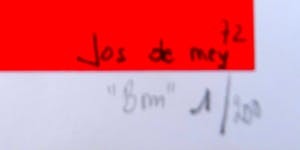 Jos de mey 72
"Bom" 1/200